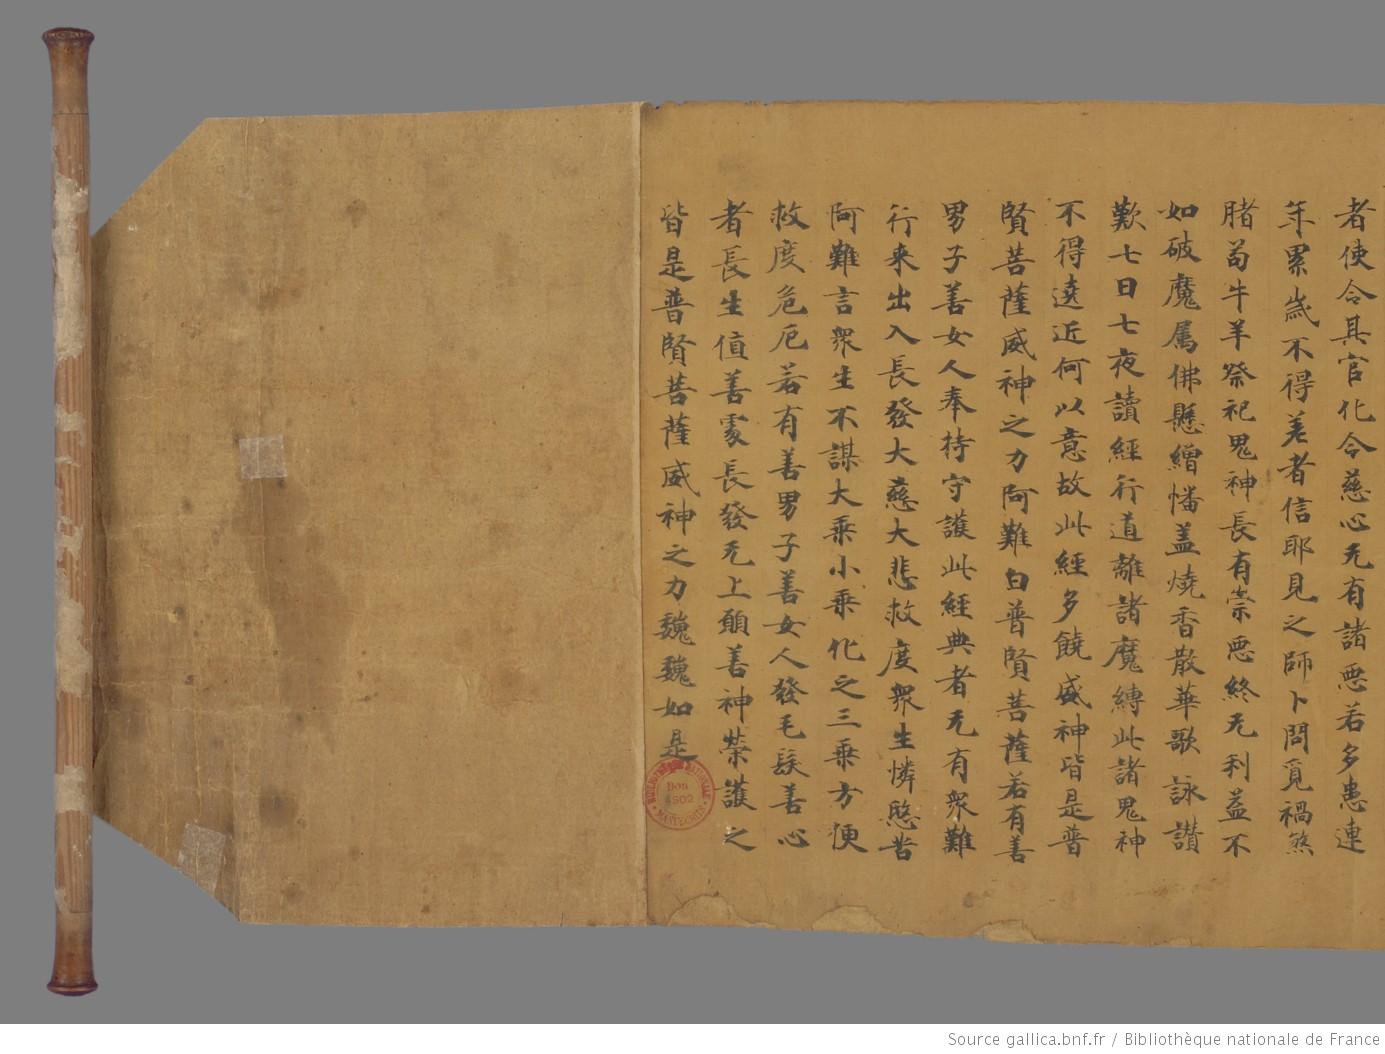 者使令其官化令慈心无有諸惡若多患連
年累歲不得差者信耶見之師卜問覓禍煞
賭茍牛羊祭祀鬼神長有祟惡終无利益不
如破魔屬佛懸繒幡蓋燒香散華歌詠讚
歎七日七夜讀經行道離諸魔縛此諸鬼神
不得遶近何以意故此經多饒威神皆是普
賢菩薩威神之力阿難白普賢菩薩若有善
男子善女人奉持守護此經典者无有衆難
行来出入長發大慈大悲救度衆生憐愍昔
阿難言衆生不謀大乘小乘化之三乘方便
救度危厄若有善男子善女人發毛髮善心
者長生值善處長發无上願善神榮護之
皆是普賢菩薩威神之力巍巍如是
BIBLIOTHÈQUE NATIONALE
Don
4502
MANUSCRITS
Source gallica.bnf.fr / Bibliothèque nationale de France